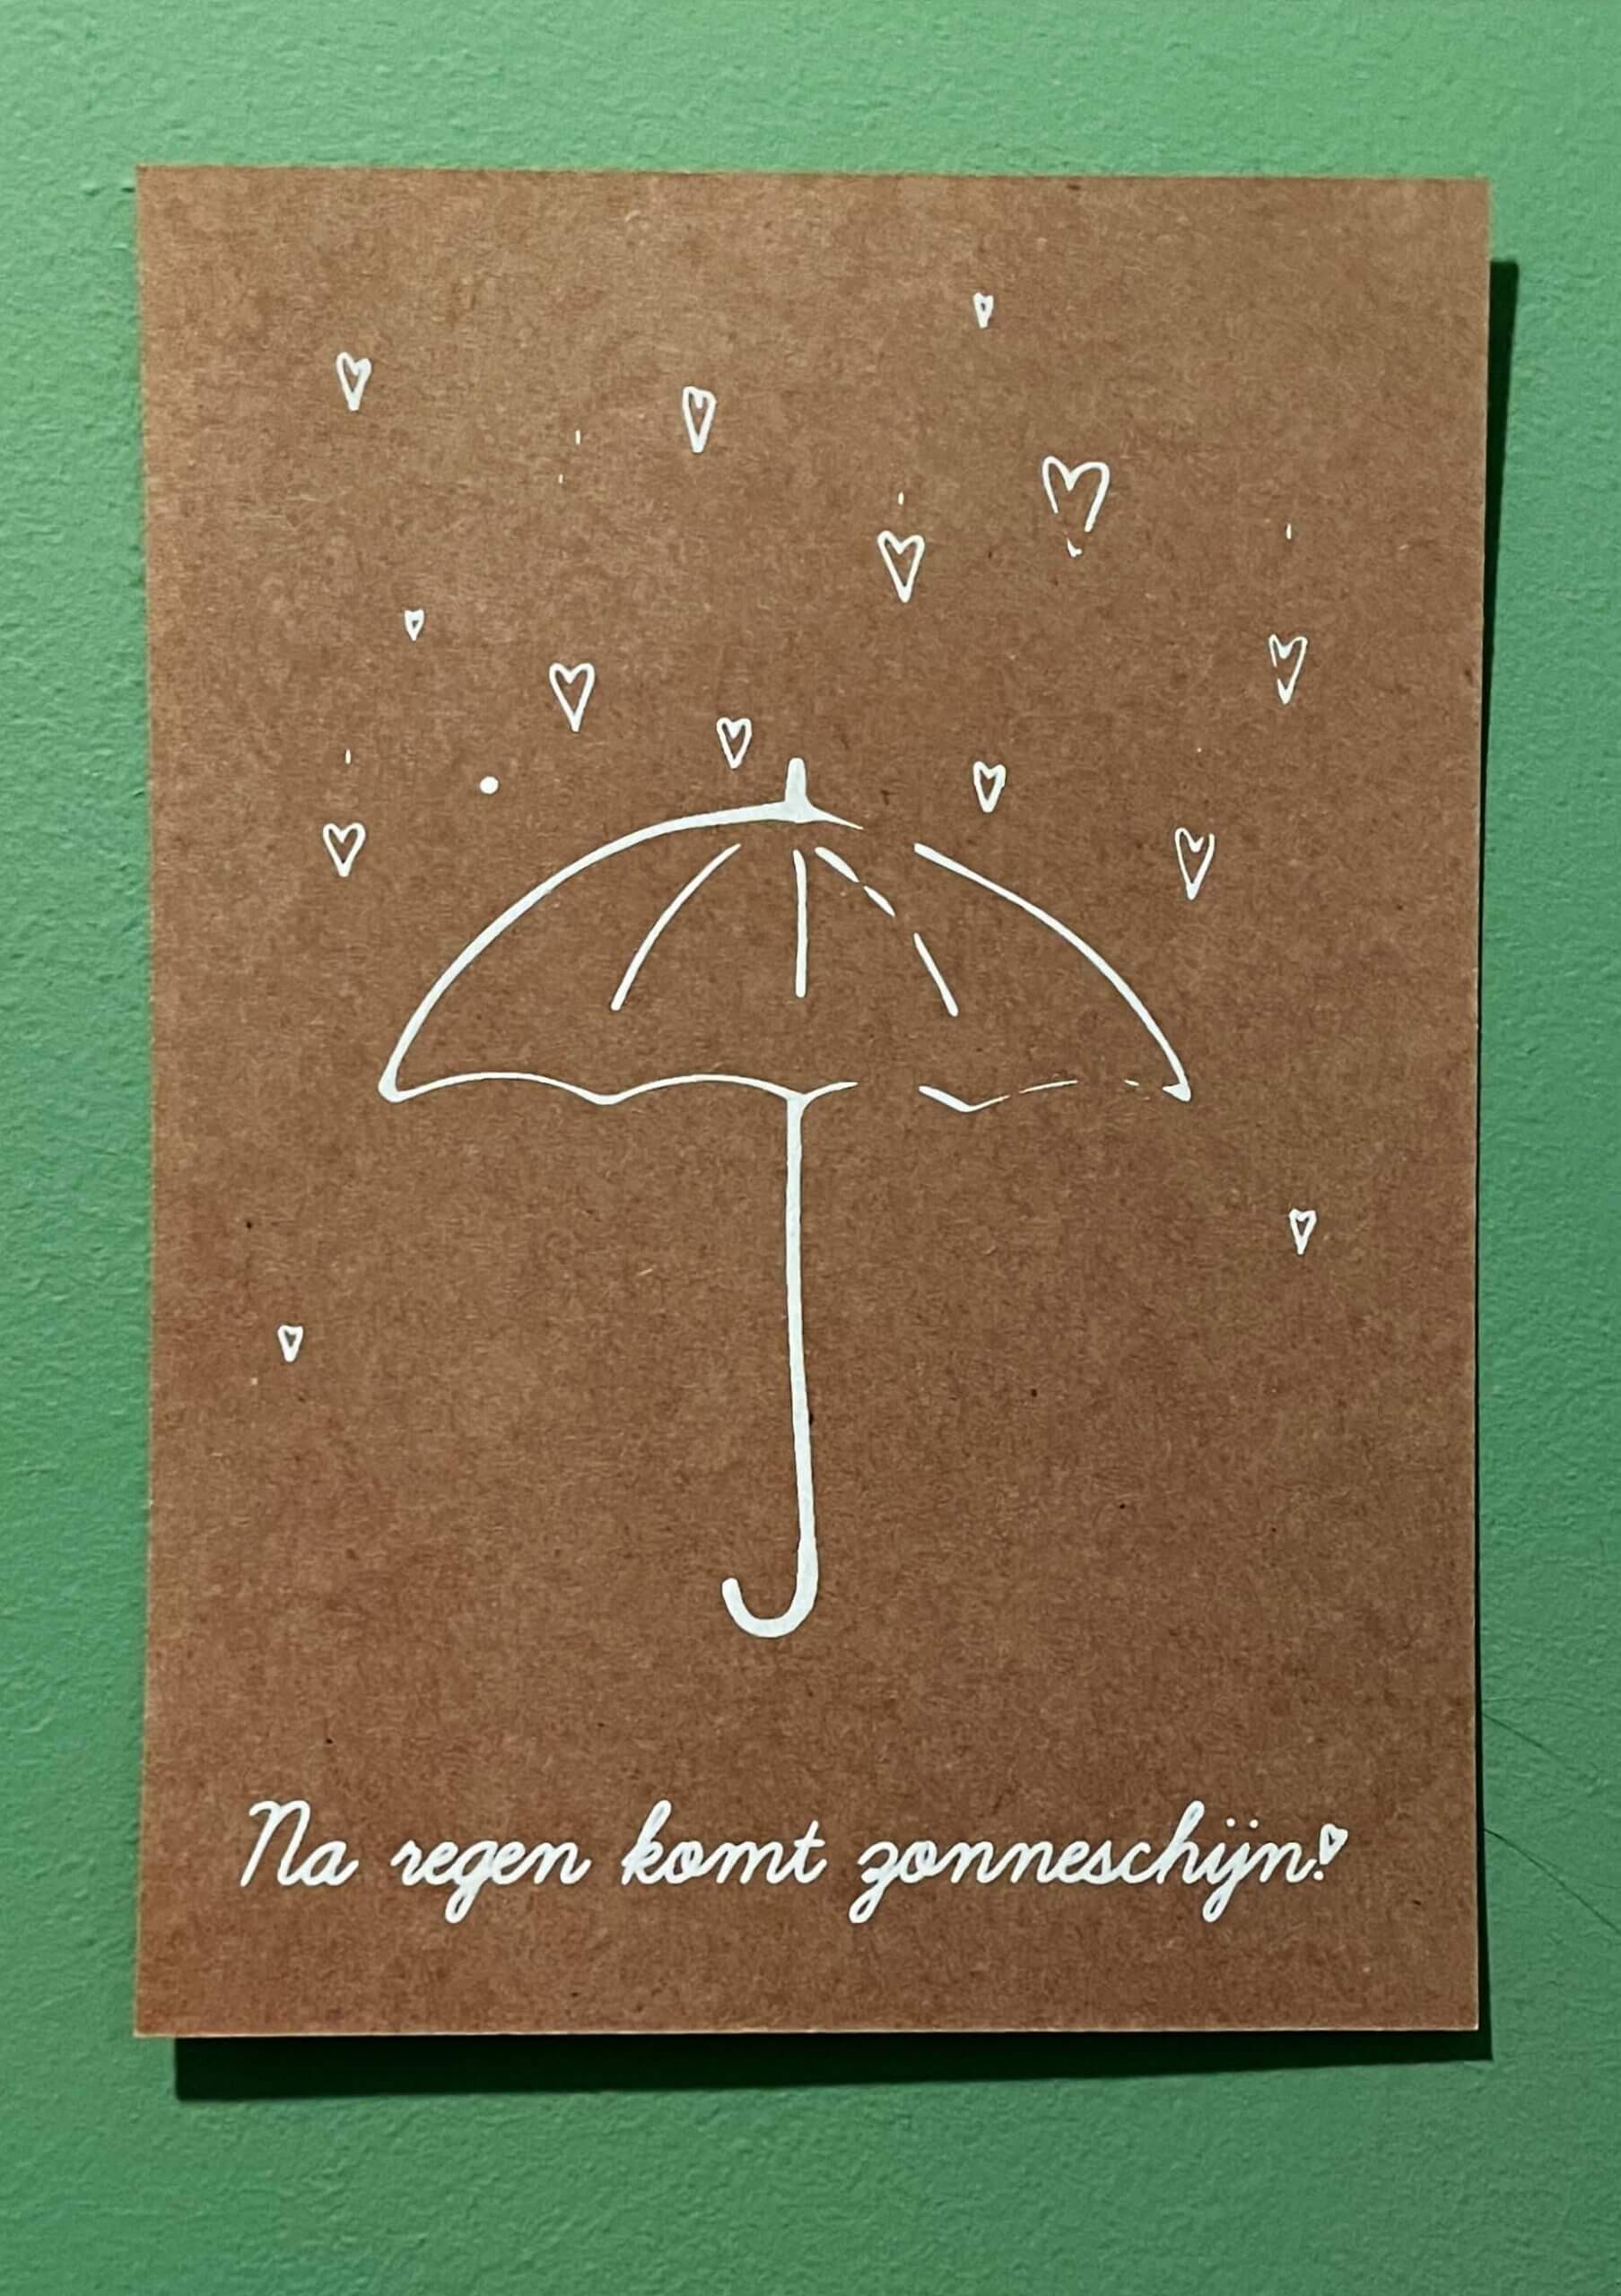 Na regen komt zonneschijn!